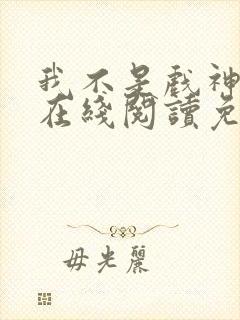 我不是戲神
在綫閱讀免
毋光麗